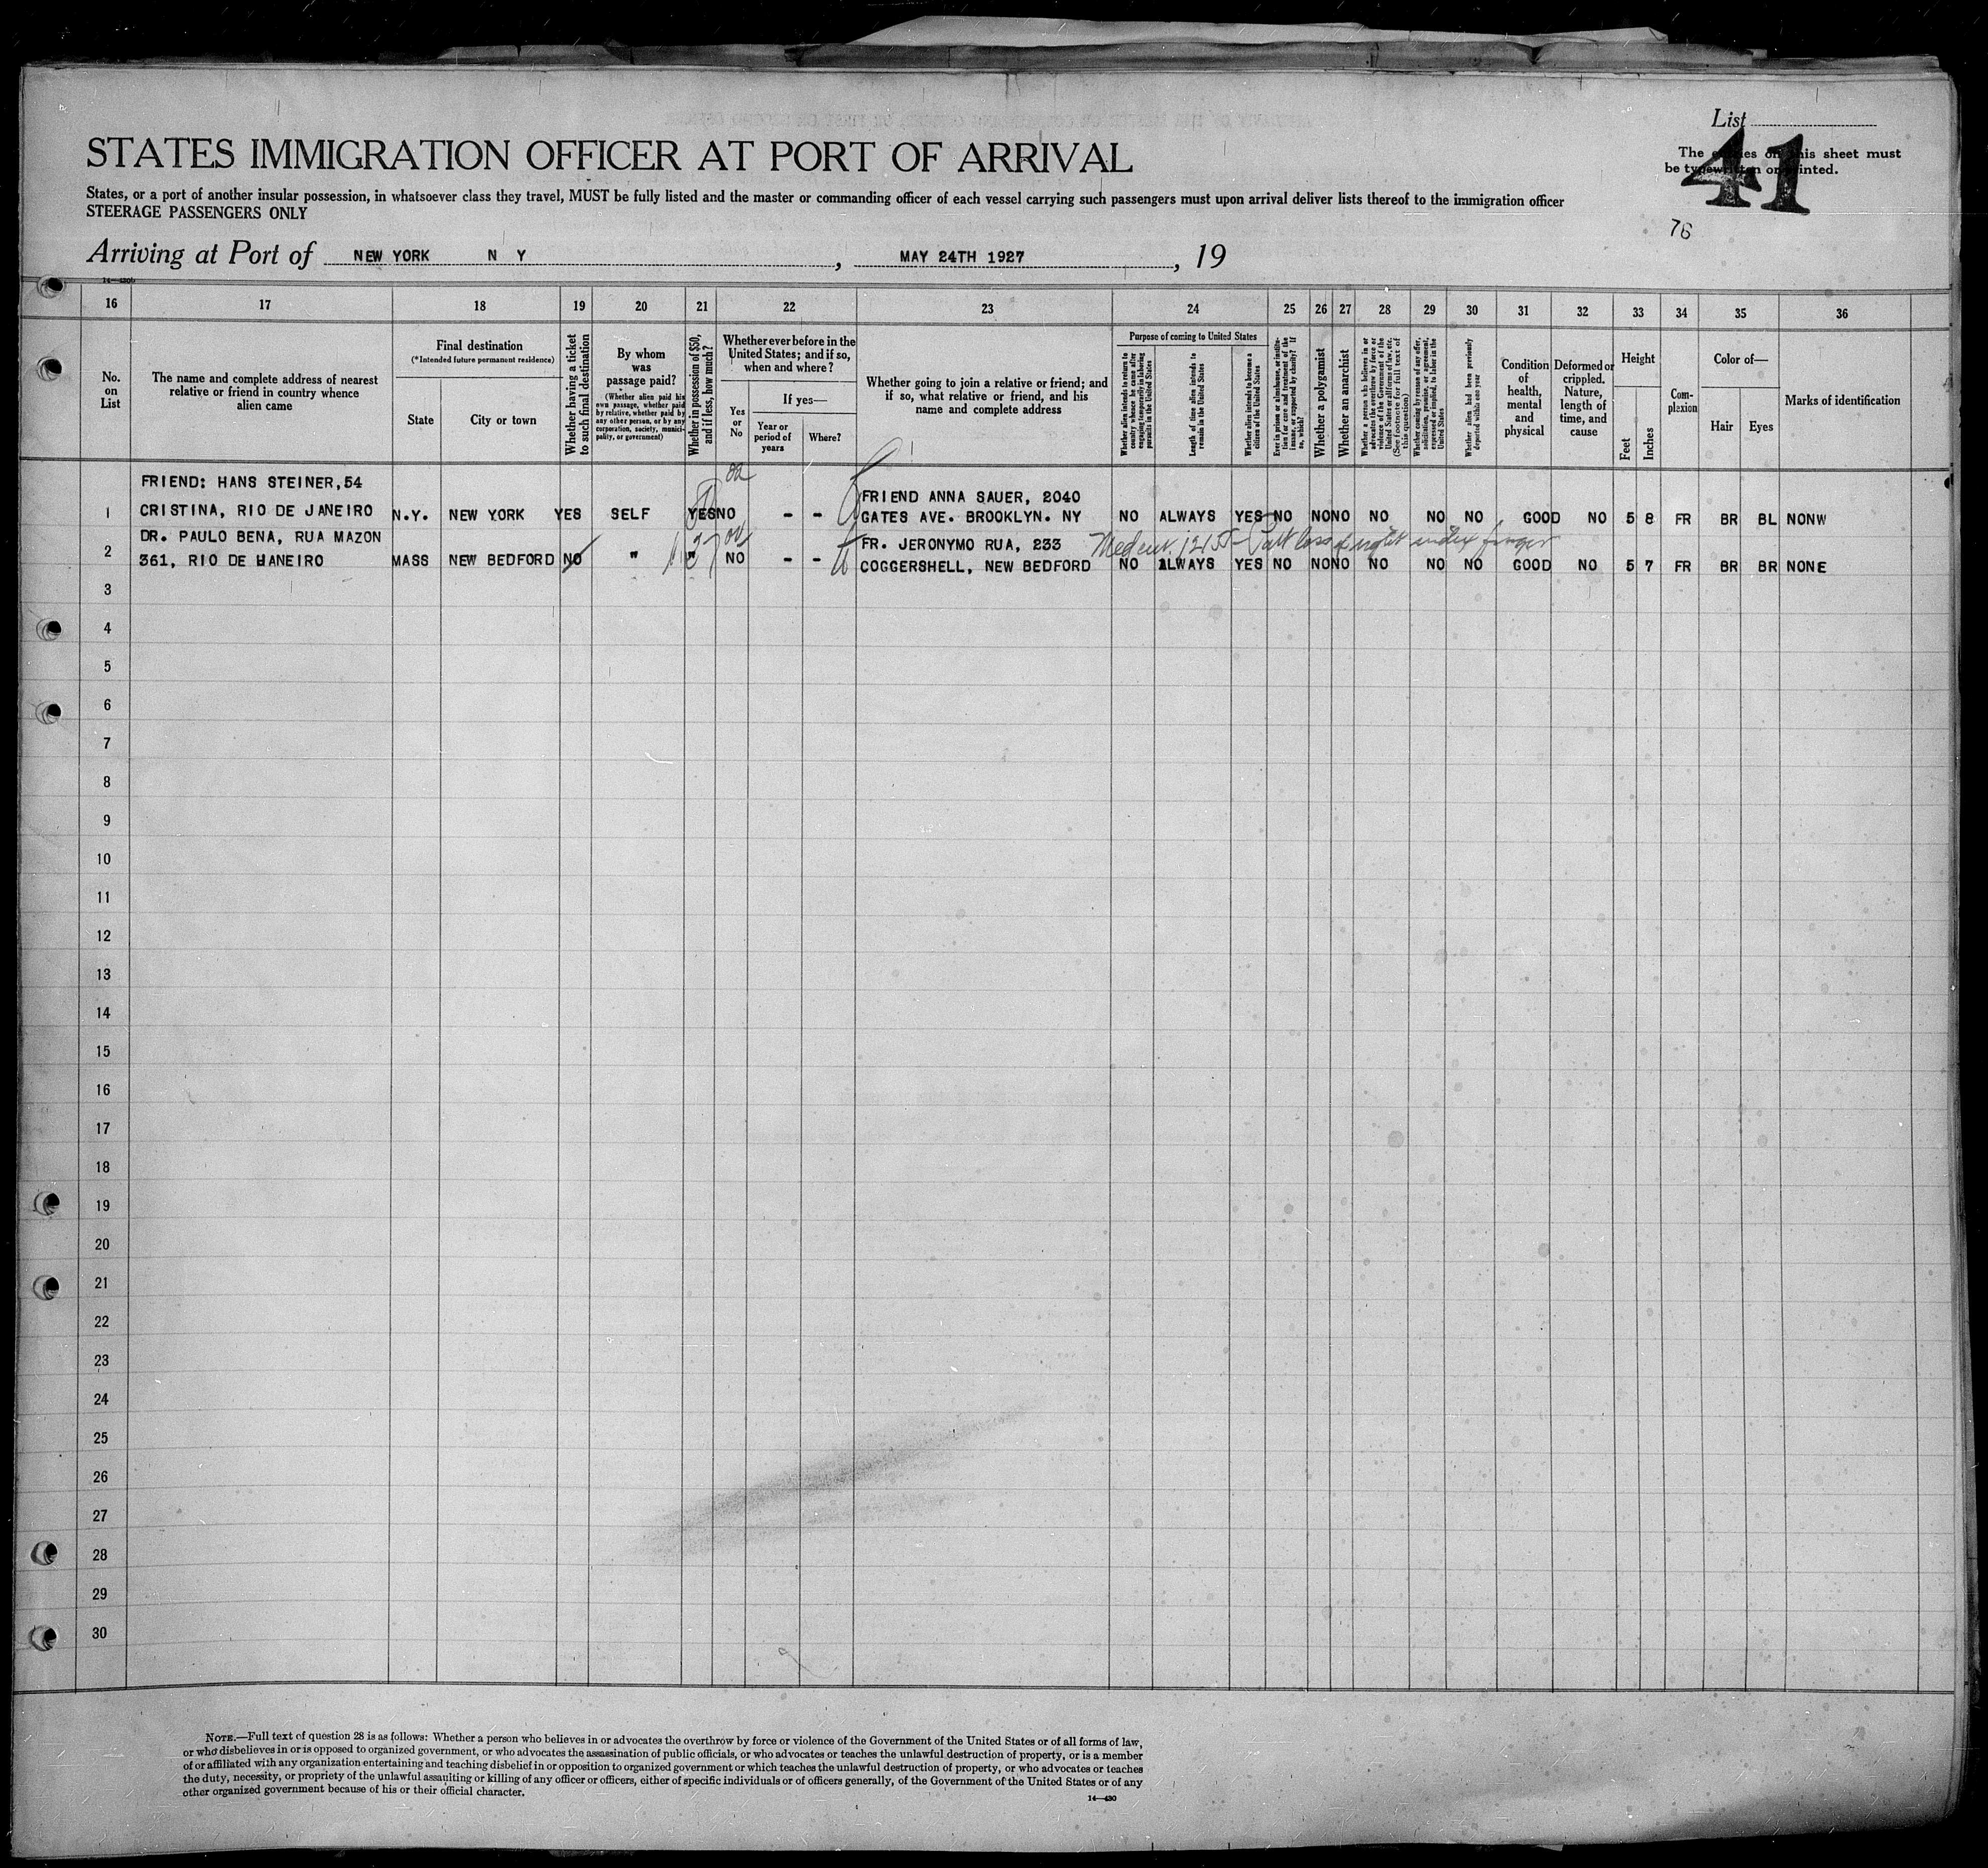 List
41
The entries on this sheet must
be typewritten or printed.
76
STATES IMMIGRATION OFFICER AT PORT OF ARRIVAL
States, or a port of another insular possession, in whatsoever class they travel, MUST be fully listed and the master or commanding officer of each vessel carrying such passengers must upon arrival deliver lists thereof to the immigration officer
STEERAGE PASSENGERS ONLY
Arriving at Port of NEW YORK N Y, MAY 24TH 1927, 19
16 17 18 19 20 21 22 23 24 25 26 27 28 29 30 31 32 33 34 35 36
No.
on
List
The name and complete address of nearest
relative or friend in country whence
alien came
Final destination
(*Intended future permanent residence)
State
City or town
Whether having a ticket
to such final destination
By whom
was
passage paid?
(Whether alien paid his
own passage, whether paid
by relative, whether paid by
any other person, or by any
corporation, society, munici-
pality, or government)
Whether in possession of $50,
and if less, how much?
Whether ever before in the
United States; and if so,
when and where?
Yes
or
No
If yes—
Year or
period of
years
Where?
Whether going to join a relative or friend; and
if so, what relative or friend, and his
name and complete address
Purpose of coming to United States
Whether alien intends to return to
country whence he came after
engaging temporarily in laboring
pursuits in the United States
Length of time alien intends to
remain in the United States
Whether alien intends to become a
citizen of the United States
Ever in prison or almshouse, or institu-
tion for care and treatment of the
insane, or supported by charity? If
so, which?
Whether a polygamist
Whether an anarchist
Whether a person who believes in or
advocates the overthrow by force or
violence of the Government of the
United States or all forms of law, etc.
(See footnote for full text of
this question)
Whether coming by reason of any offer,
solicitation, promise, or agreement,
expressed or implied, to labor in the
United States
Whether alien had been previously
deported within one year
Condition
of
health,
mental
and
physical
Deformed or
crippled.
Nature,
length of
time, and
cause
Height
Feet
Inches
Com-
plexion
Color of—
Hair
Eyes
Marks of identification
FRIEND: HANS STEINER,54 FRIEND ANNA SAUER, 2040
1 CRISTINA, RIO DE JANEIRO N.Y. NEW YORK YES SELF YES NO - - GATES AVE. BROOKLYN. NY NO ALWAYS YES NO NO NO NO NO NO GOOD NO 5 8 FR BR BL NONW
DR. PAULO BENA, RUA MAZON FR. JERONYMO RUA, 233 Med cert. loss of right index finger
2 361, RIO DE HANEIRO MASS NEW BEDFORD NO " " NO - - COGGERSHELL, NEW BEDFORD NO ALWAYS YES NO NO NO NO NO NO GOOD NO 5 7 FR BR BR NONE
3
4
5
6
7
8
9
10
11
12
13
14
15
16
17
18
19
20
21
22
23
24
25
26
27
28
29
30
NOTE.—Full text of question 28 is as follows: Whether a person who believes in or advocates the overthrow by force or violence of the Government of the United States or of all forms of law,
or who disbelieves in or is opposed to organized government, or who advocates the assassination of public officials, or who advocates or teaches the unlawful destruction of property, or is a member
of or affiliated with any organization entertaining and teaching disbelief in or opposition to organized government or which teaches the unlawful destruction of property, or who advocates or teaches
the duty, necessity, or propriety of the unlawful assaulting or killing of any officer or officers, either of specific individuals or of officers generally, of the Government of the United States or of any
other organized government because of his or their official character.
14—430